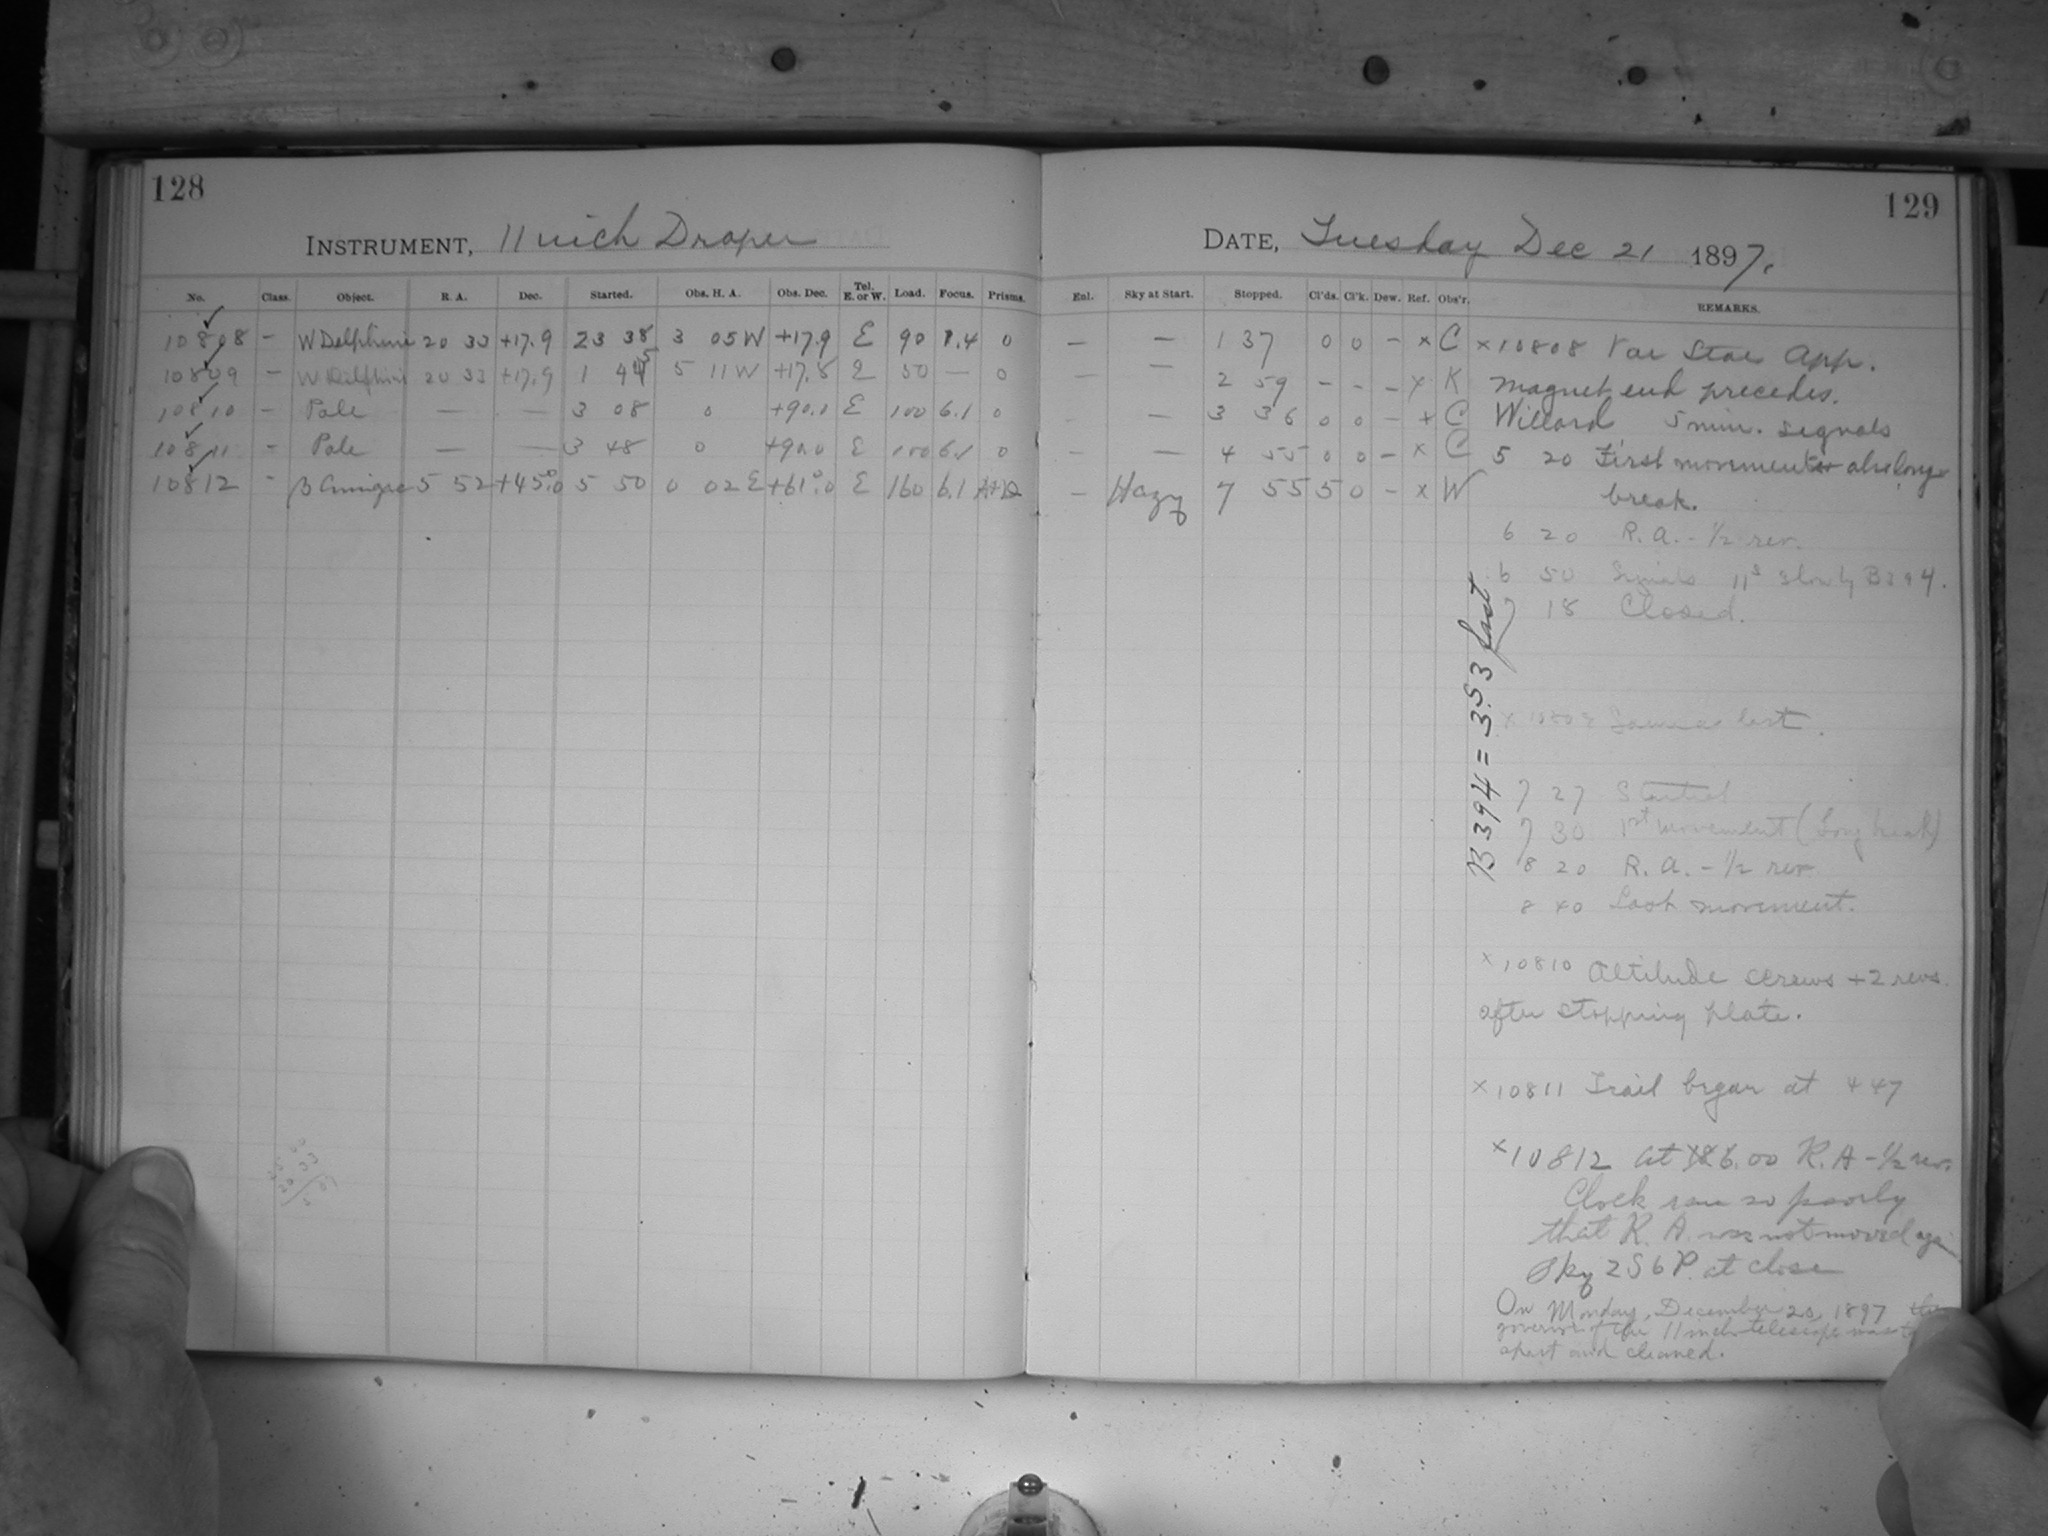 128
INSTRUMENT, 11 inch Draper
No. Class. Object. R. A. Dec. Started. Obs. H. A. Obs. Dec. Tel. E. or W. Load. Focus. Prisms.
10808 - W Delphini 20 33 +17.9 23 38 3 05 W +17.9 E 90 0
10809 - W Delphini 20 33 +17.9 1 5 11 W +17.8 E 50 — 0
10810 - Pole — — 3 08 0 +90.0 E 100 6.1 0
10811 - Pole — — 3 48 0 +90.0 E 100 6.1 0
10812 - β Aurigae 5 52 +45.0 5 50 0 02 E +61.0 E 160 6.1
129
DATE, Tuesday Dec 21 1897.
Enl. Sky at Start. Stopped. Cl'ds. Cl'k. Dew. Ref. Obs'r. REMARKS.
— — 1 37 0 0 - x C x10808 Var Star App.
— — 2 59 - - - x K Magnet end precedes.
- — 3 36 0 0 - x C Willard 5 min. signals
- — 4 55 0 0 - x C 5 20 First movement also long
- Hazy 7 55 5 0 - x W break.
6 20 R. A. - 1/2 rev.
6 50 Signals 11s slow by B394.
7 18 Closed.
B 394 = 3.s53 fast
x 10809 Same as last.
7 27 Started
7 30 1st movement (Long break)
8 20 R. A. - 1/2 rev.
8 40 Last movement.
x 10810 Altitude screws +2 revs.
after stopping plate.
x 10811 Trail began at 4 47
x10812 At 6.00 R. A - 1/2 rev.
Clock ran so poorly
that R. A. was not moved again
Sky 2S6P. at close
On Monday, December 20, 1897 the
governor of the 11 inch telescope was
apart and cleaned.